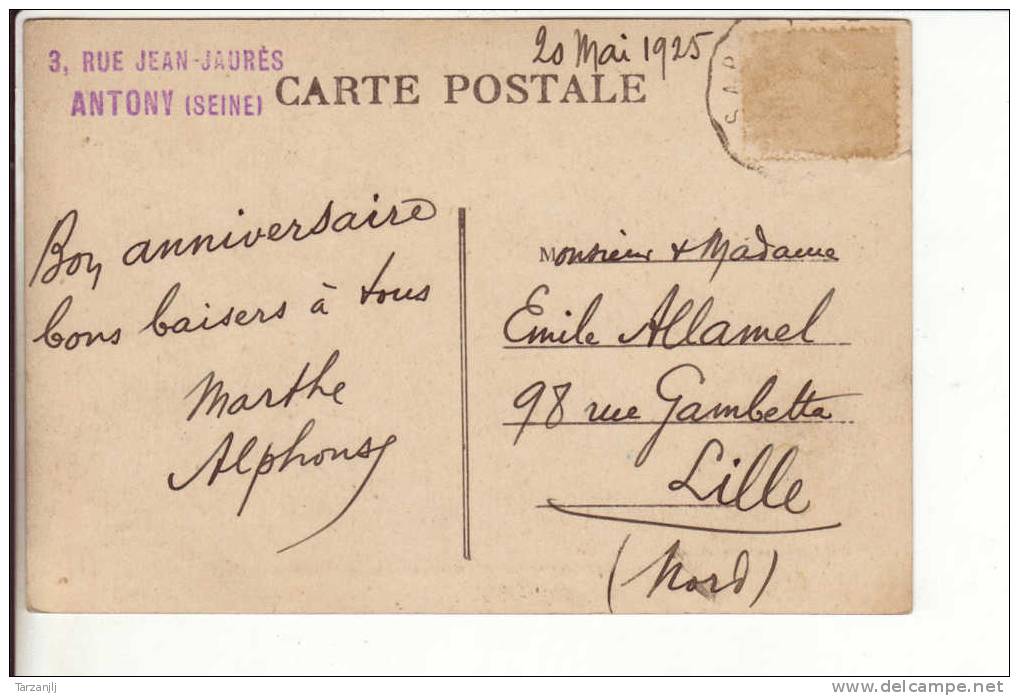 3, RUE JEAN-JAURÈS
ANTONY (SEINE)
CARTE POSTALE
20 Mai 1925
SAR
Bon anniversaire
bons baisers à tous
Marthe
Alphonse
Monsieur & Madame
Emile Allamel
98 rue Gambetta
Lille
(Nord)
Tarzanjlj
http://www.delcampe.net